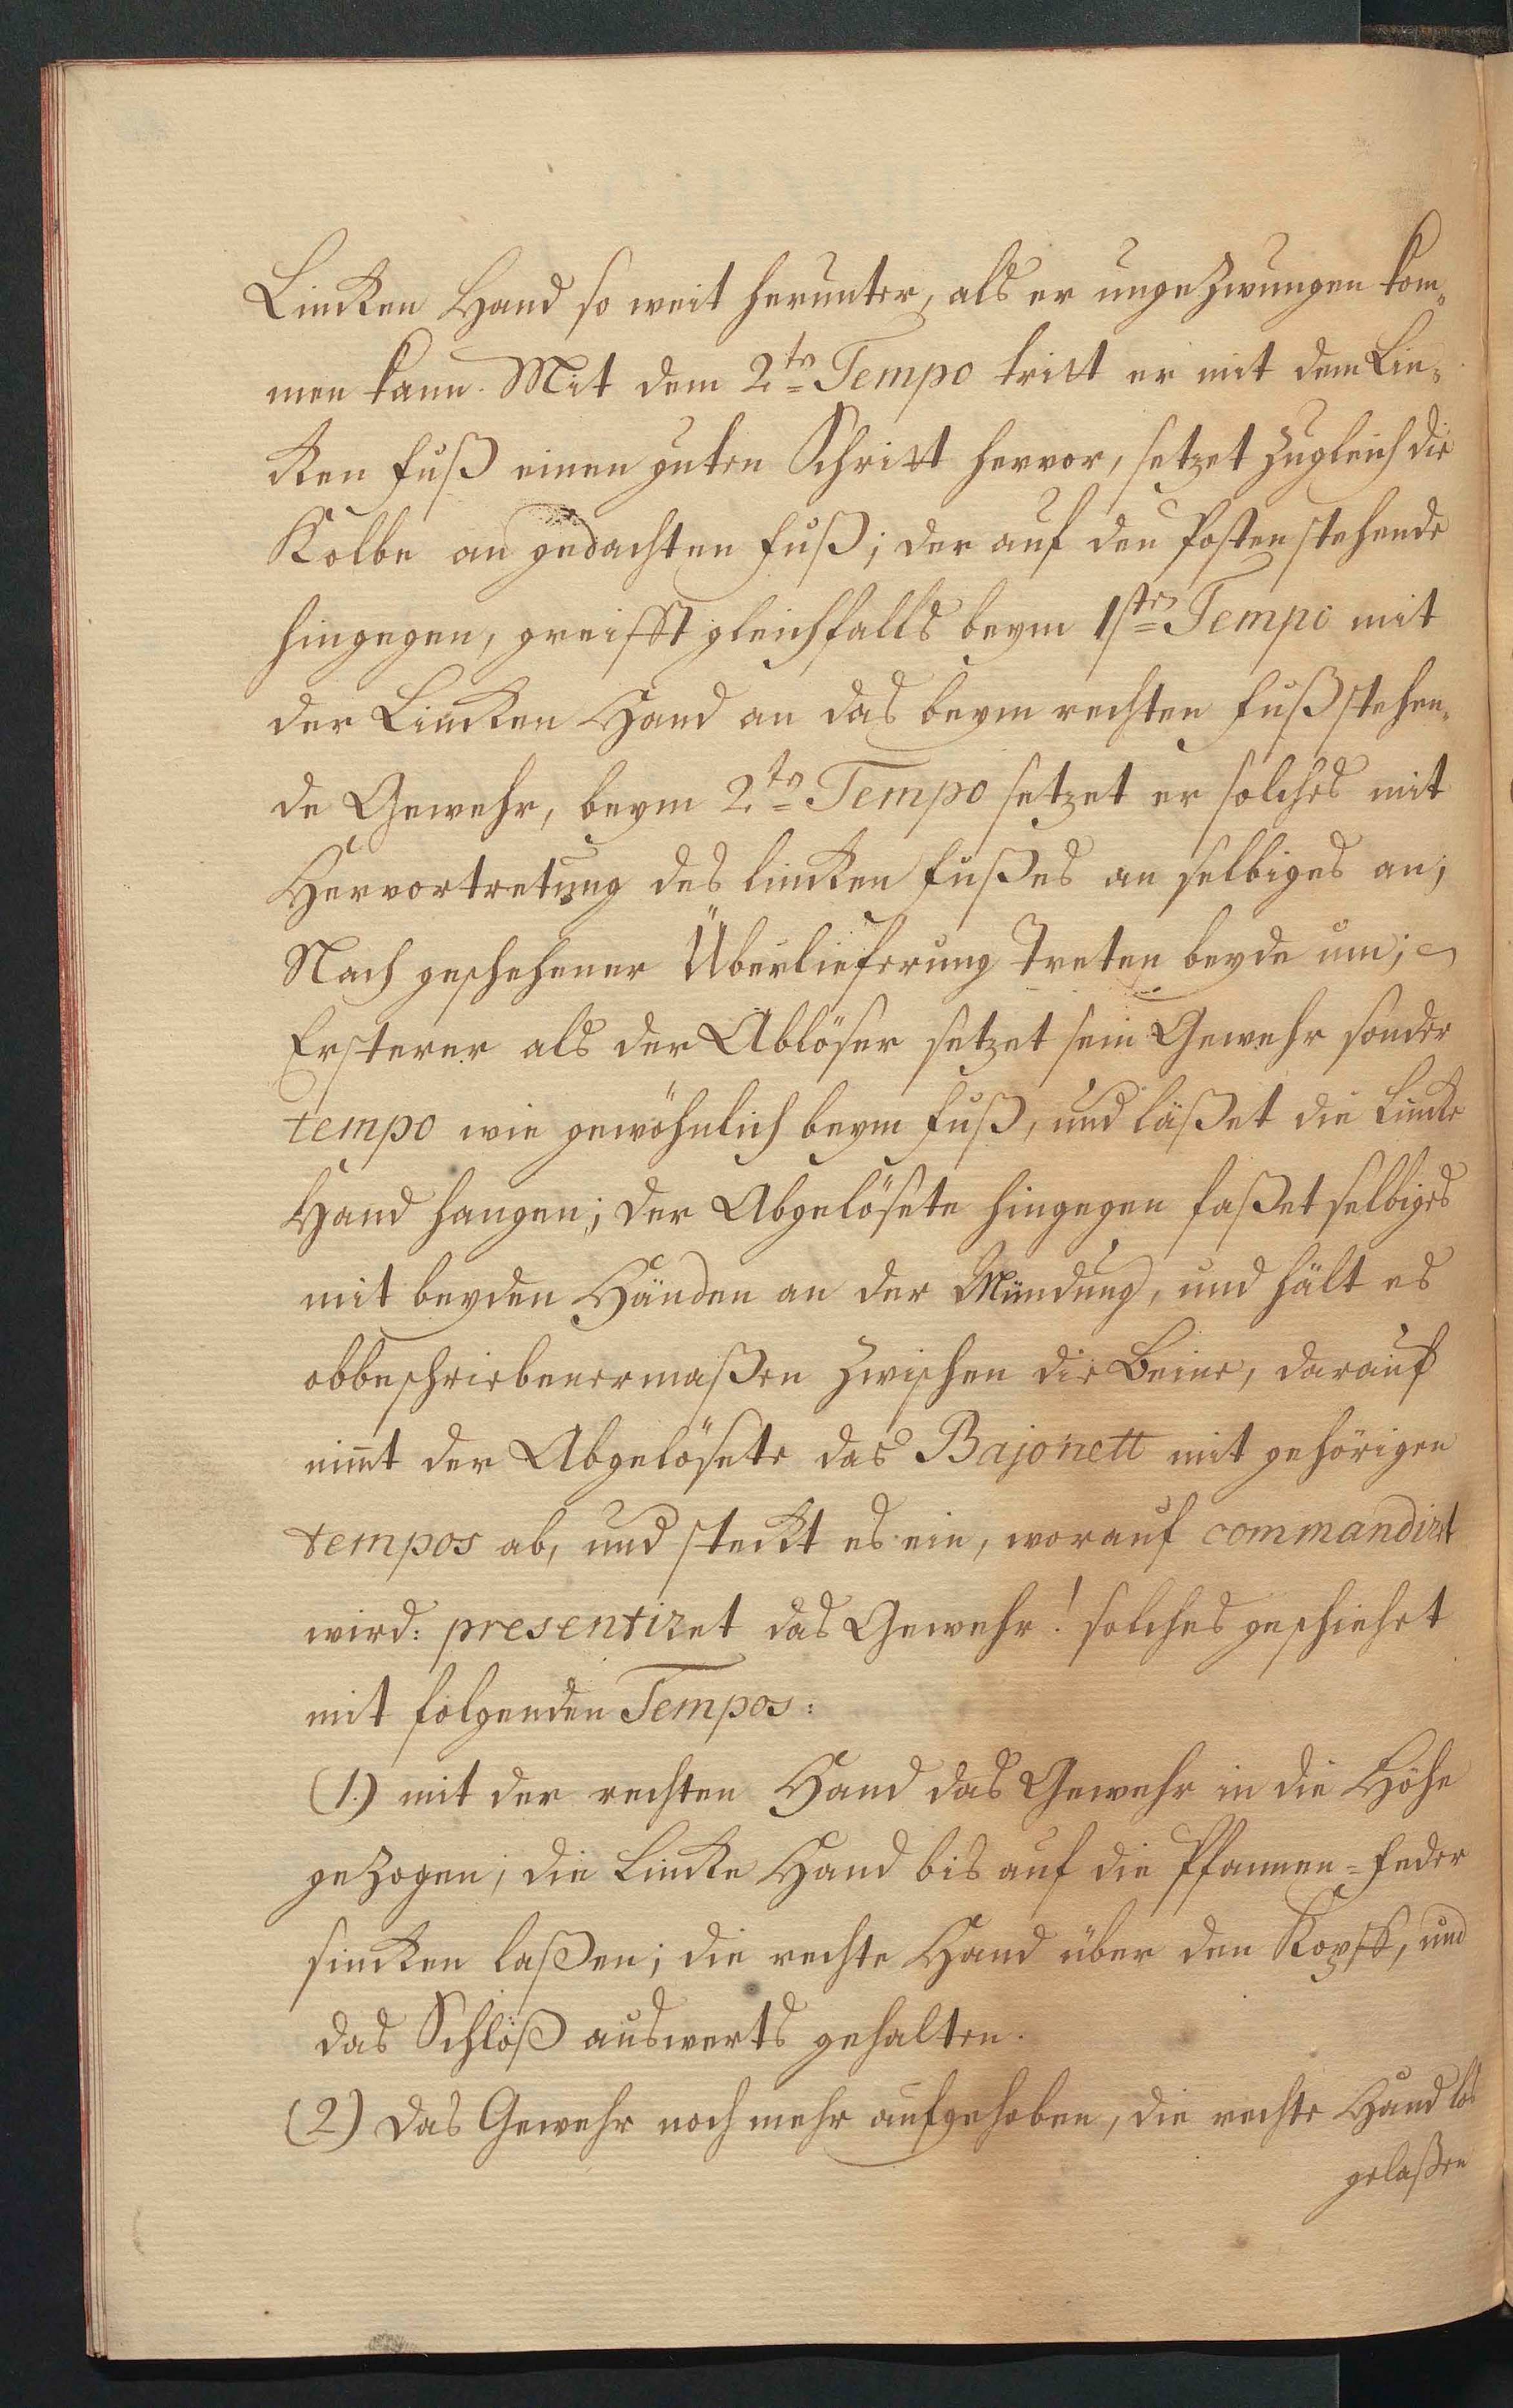 Lincken Hand so weit herunter, als er ungezwungen kom„
men kann. Mit dem 2.te Tempo tritt er mit dem Lin„
cken Fuß einen guten Schritt hervor, setzet zugleich die
Kolbe an gedachten Fuß; der auf den Posten stehende
hingegen, greifft gleichfalls beym 1ste Tempo mit
der Lincken Hand an das beym rechten Fuß stehen„
de Gewehr, beym 2.te Tempo setzet er solches mit
Hervortretung des lincken Fußes an selbiges an;
Nach geschehener Überlieferung treten beyde um;
Ersterer als der Ablöser setzet sein Gewehr sonder
tempo wie gewöhnlich beym Fuß, und läßet die Lincke
Hand hangen; der Abgelösete hingegen faßet selbiges
mit beyden Händen an der Mündung, und hält es
obbeschriebenermaßen zwischen die Beine, darauf
nim̅t der Abgelösete das Bajonett mit gehörigen
tempos ab, und steckt es ein, worauf commandirt
wird: presentiret das Gewehr! solches geschiehet
mit folgenden Tempos:
(1.) mit der rechten Hand das Gewehr in die Höhe
gezogen; die Lincke Hand bis auf die Pfannen=Feder
sincken laßen; die rechte Hand über den Kopff, und
das Schloß auswerts gehalten.
(2.) das Gewehr noch mehr aufgehoben, die rechte Hand los
gelaßen